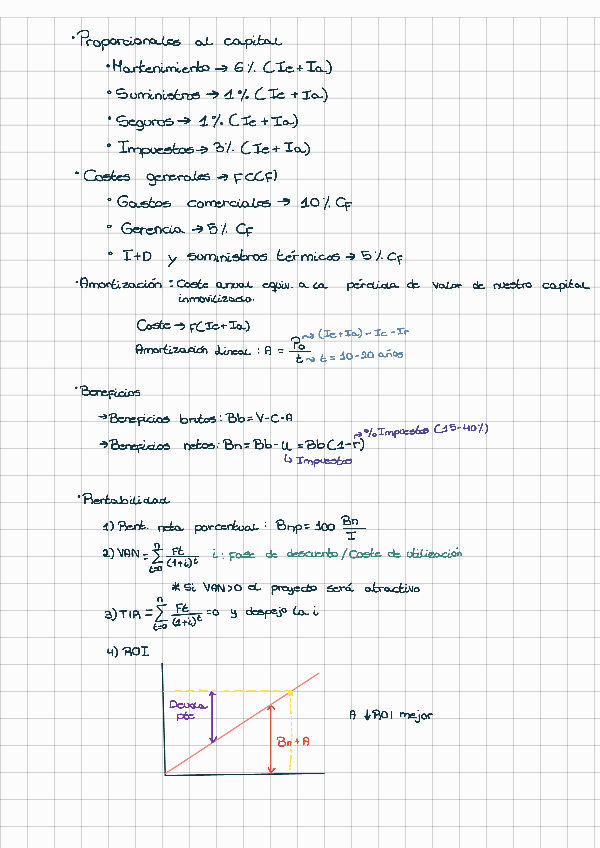 · Proporcionales al capital
• Mantenimiento → 6% (Ie+Ia)
• Suministros → 1% (Ie+Ia)
• Seguros → 1% (Ie+Ia)
• Impuestos → 3% (Ie+Ia)
· Costes generales → f(CF)
• Gastos comerciales → 10% CF
• Gerencia → 5% CF
• I+D y suministros térmicos → 5% CF
· Amortización: Coste anual equiv. a la pérdida de valor de nuestro capital
inmovilizado.
Coste → f(Ie+Ia)
→ (Ie+Ia) - Ic - Ir
Amortización lineal: A = Pa/t
→ t = 10-20 años
· Beneficios
→ Beneficios brutos: Bb = V-C-A
→ % Impuestos (15-40%)
→ Beneficios netos: Bn = Bb - U = Bb(1-r)
↳ Impuestos
· Rentabilidad
1) Rent. neta porcentual: Bnp = 100 Bn/I
2) VAN = ∑ t=0 n Ft/(1+i)^t i: tasa de descuento/Coste de utilización
* Si VAN>0 el proyecto será atractivo
3) TIR = ∑ t=0 n Ft/(1+i)^t = 0 y despejo la i
4) ROI
Deuda
pte
A ↓ROI mejor
Bn + A